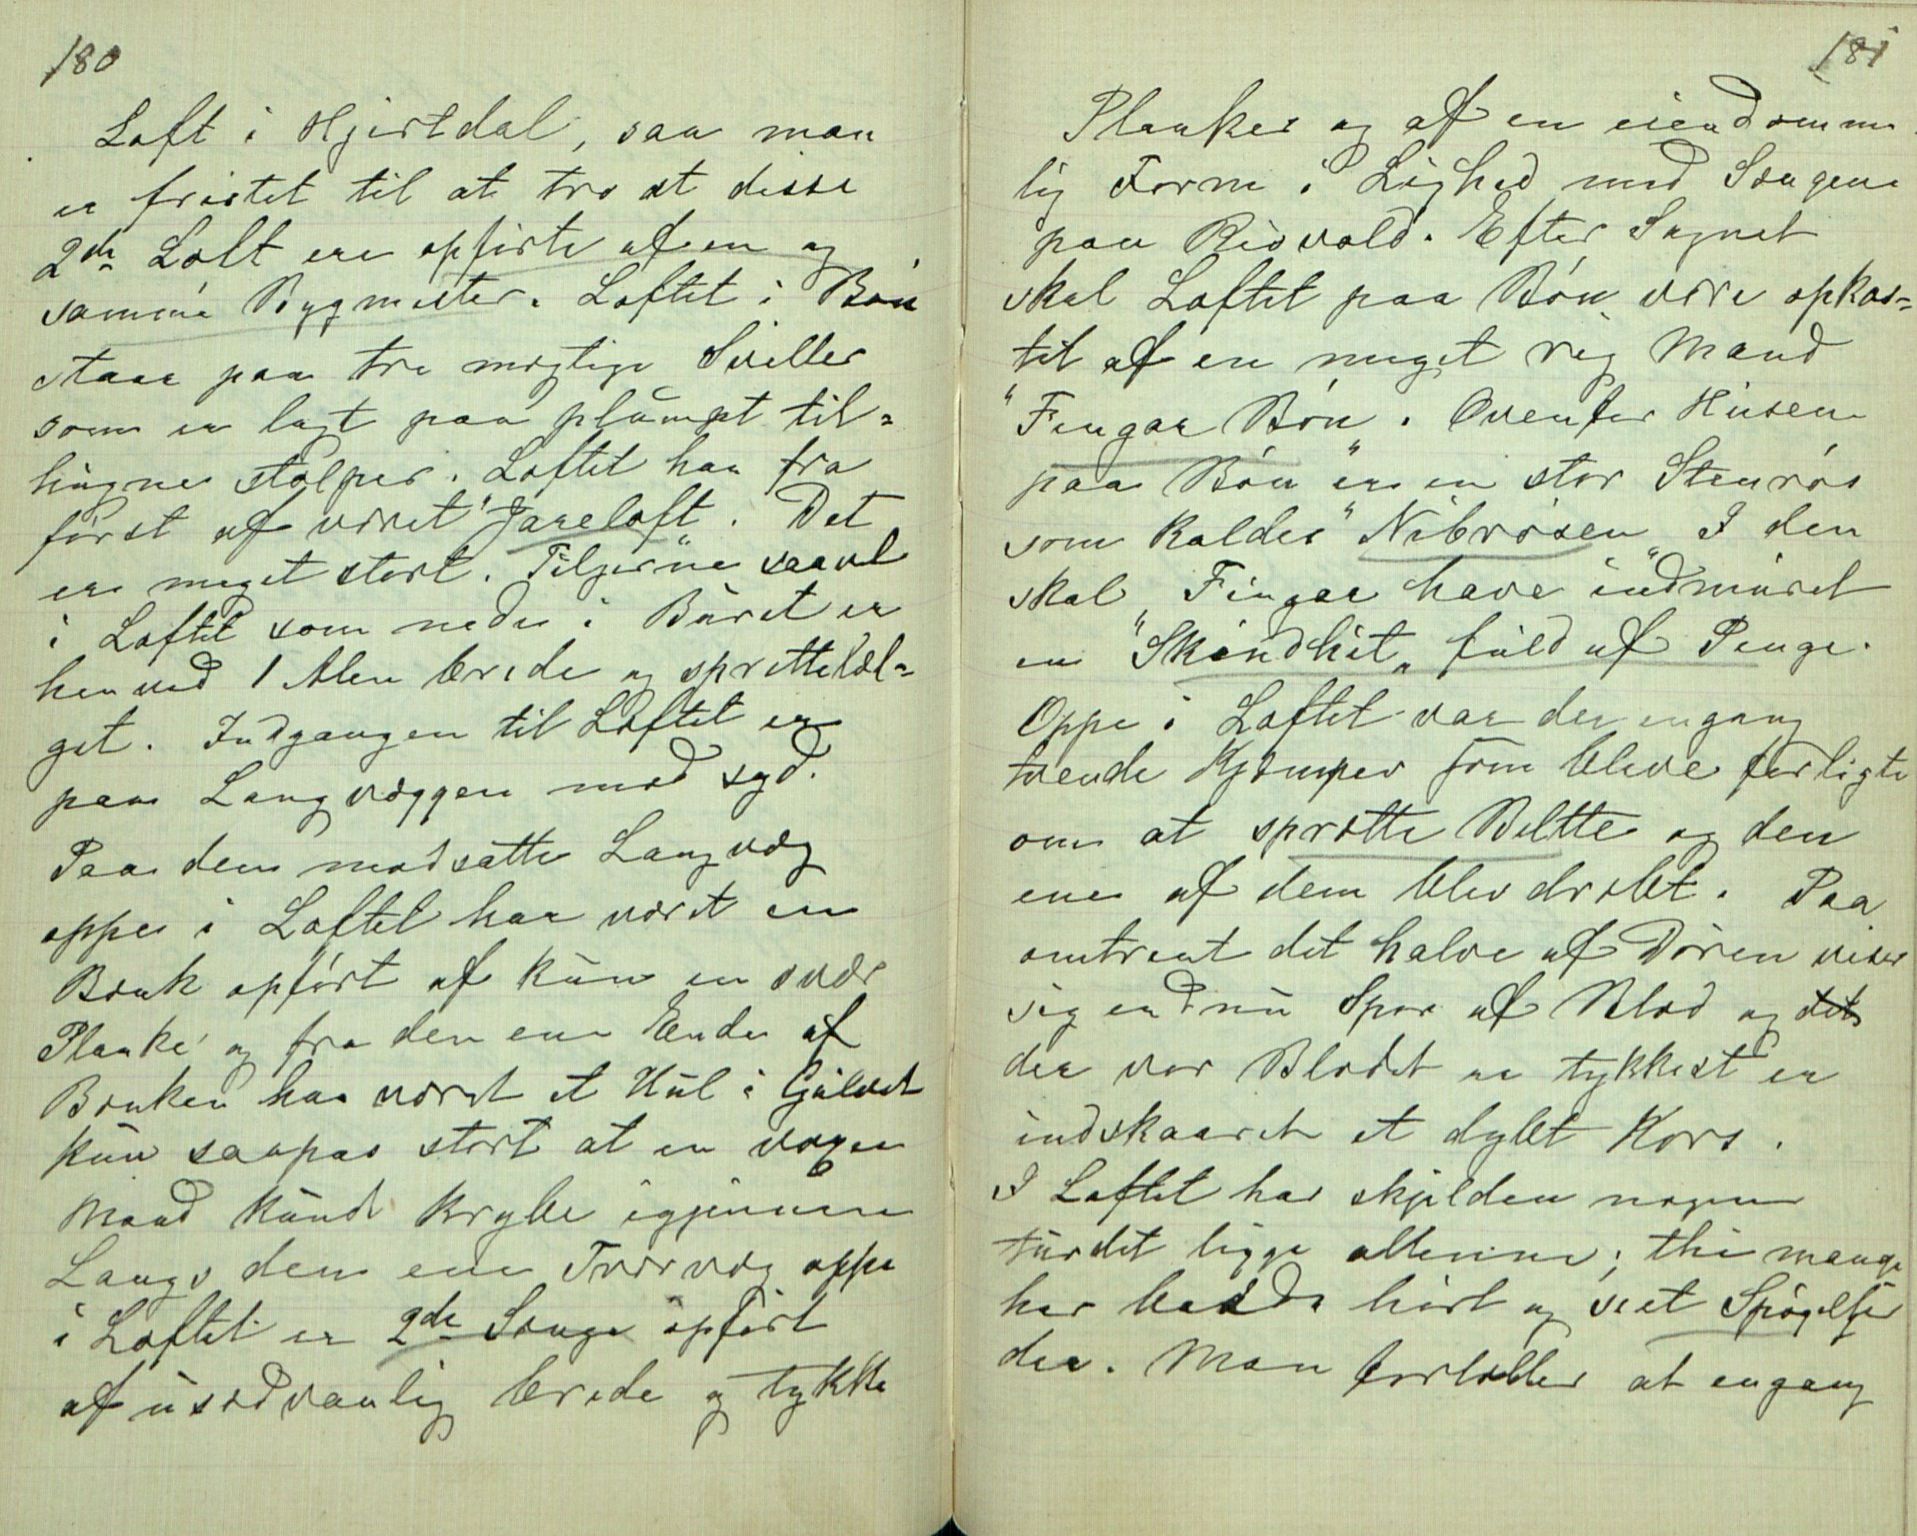 180
Loft i Hjertdal, saa man
er fristet til at tro at disse
2de Loft ere opførte af en og
samme Bygmester. Loftet i Bøn
staar paa tre mægtige Sviller
som er lagt paa plumpt til=
hugne stolper. Loftet har fra
først af været "Jareloft". Det
er meget stort. Tiljerne saavel
i Loftet som nede i Buret er
henved 1 Alen brede og sprettetæl=
get. Indgangen til Loftet er
paa Langvæggen mod syd.
Paa den modsatte Langvæg
oppe i Loftet har været en
Bænk opført af kun en svær
Planke og fra den ene Ende af
Bænken har været et Hul i Gulvet
kun saapas stort at en voxen
Mand kunde krybe igjennem
Langs den ene Tvervæg oppe
i Loftet er 2de Senge opført
af usædvanlig brede og tykke
181
Planker og af en eiendomme
lig Form i Lighed med Sengene
paa Risvold. Efter Sagnet
skal Loftet paa Bøn være opkas=
tet af en meget rig Mand
"Fingar Bøn". Ovenfor Husene
paa Bøn er en stor Stenrøs
som kaldes "Nibrøsen" I den
skal Fingar have indmuret
en "Skindhit" fuld af Penge.
Oppe i Loftet var der engang
tvende Kjæmper som bleve forligte
om at sprætte Beltte og den
ene af dem blev dræbt. Paa
omtrent det halve af Døren viser
sig endnu Spor af Blod og det
der vor Blodet er tykkest er
indskaaret et dybt Kors.
I Loftet har skjelden nogen
turdet ligge allene; thi mange
har baade hørt og seet Spøgelser
der. Man fortæller at engang